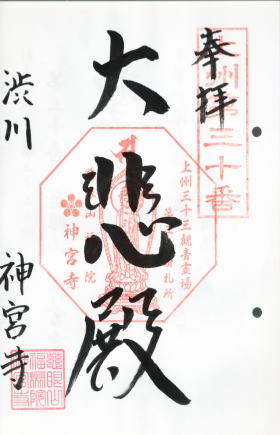 奉拝
上州第三十番
大悲殿
上州三十三観音霊場
札所
神宮寺
渋川 神宮寺